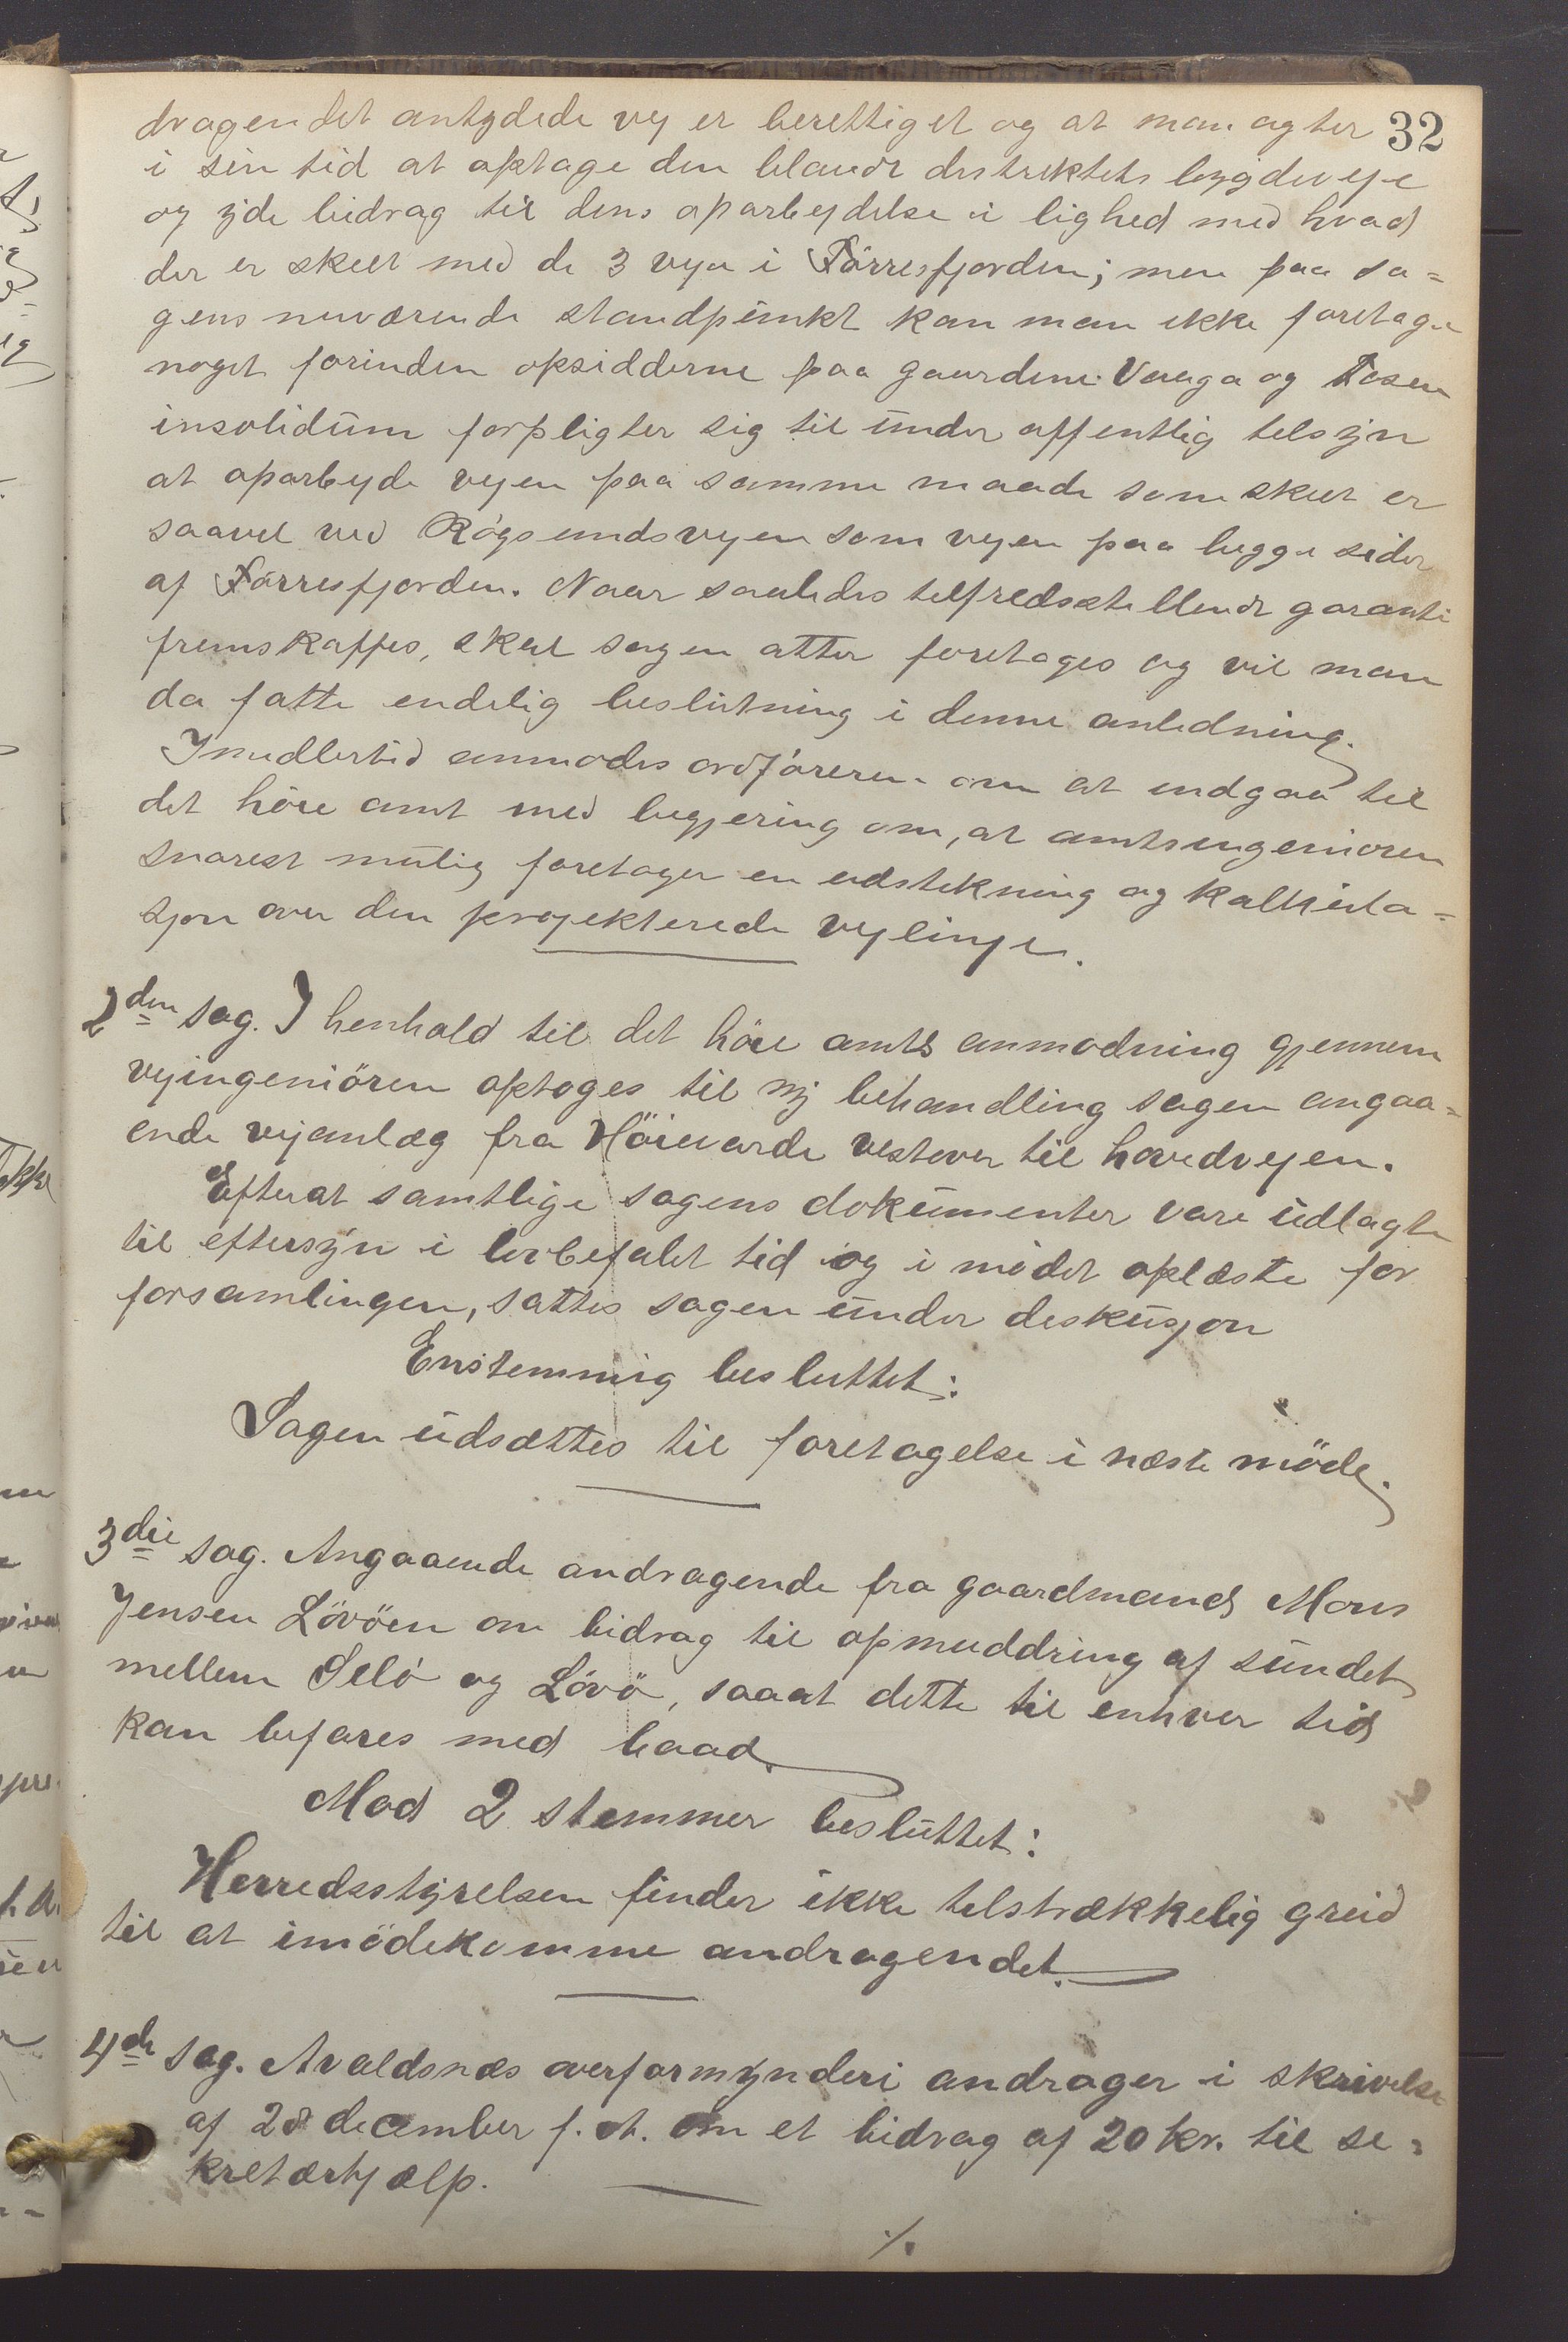 32
dragendet antydede vej er berettiget og at man agter
i sin tid at optage den blandt distriktets bygdeveje
og yde bidrag til dens oparbejdelse i lighed med hvad
der er skeet med de 3 veje i Förresfjorden; men paa sa=
gens nuværende standpunkt kan man ikke foretage
noget forinden opsidderne paa gaardene Vaaga og Fosen
insolidum forpligter sig til under offentlig tilsyn
at oparbejde vejen paa samme maade som skeet er
saavel ved Røgsundsvejen som vejen paa begge sider
af Förresfjorden. Naar saaledes tilfredsstillende garanti
fremskaffes, skal sagen atter foretages og vil man
da fatte endelig beslutning i denne anledning.
Imidlertid anmodes ordföreren om at indgaa til
det höie amt med begjering om, at amtsingeniören
snarest mulig foretager en udstikning og kalkula=
sjon over den projekterede vejlinje.
2den sag. I henhold til det höie amts anmodning gjennem
vejingeniören optoges til ny behandling sagen angaa=
ende vejanlæg fra Höievarde vestover til hovedvejen.
Efterat samtlige sagens dokumenter vare udlagte
til eftersyn i lovbefalet tid og i mödet oplæste for
forsamlingen, sattes sagen under diskusjon
Enstemmig besluttet:
Sagen udsættes til foretagelse i næste möde.
3die sag. Angaaende andragende fra gaardmand Mons
Jensen Lövöen om bidrag til opmuddring af sundet
mellem Selö og Lövö, saaat dette til enhver tid
kan befares med baad.
Mod 2 stemmer besluttet:
Herredsstyrelsen finder ikke tilstrækkelig greid
til at imödekomme andragendet.
4de sag. Avaldsnæs overformynderi andrager i skrivelse
af 28 december f. A. om et bidrag af 20 kr. til se=
kretærhjælp.
./.